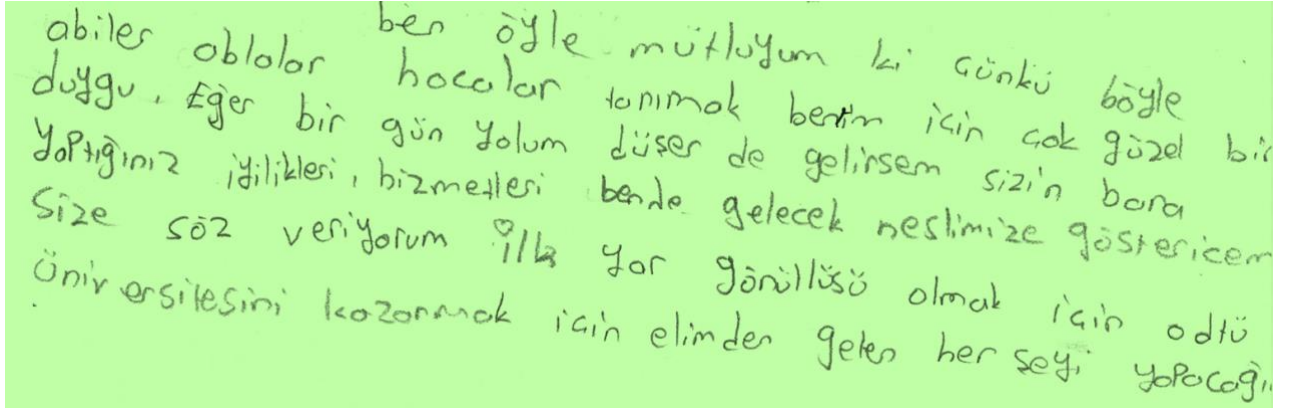 ben öyle mutluyum ki çünkü böyle
abiler ablalar hocalar tanımak benim için çok güzel bir
duygu. Eğer bir gün yolum düşer de gelirsem sizin bana
yaptığınız iyilikleri, hizmetleri bende gelecek neslimize göstericem
Size söz veriyorum ilk yar gönüllüsü olmak için odtü
Üniversitesini kazanmak için elimden gelen her şeyi yapacağı